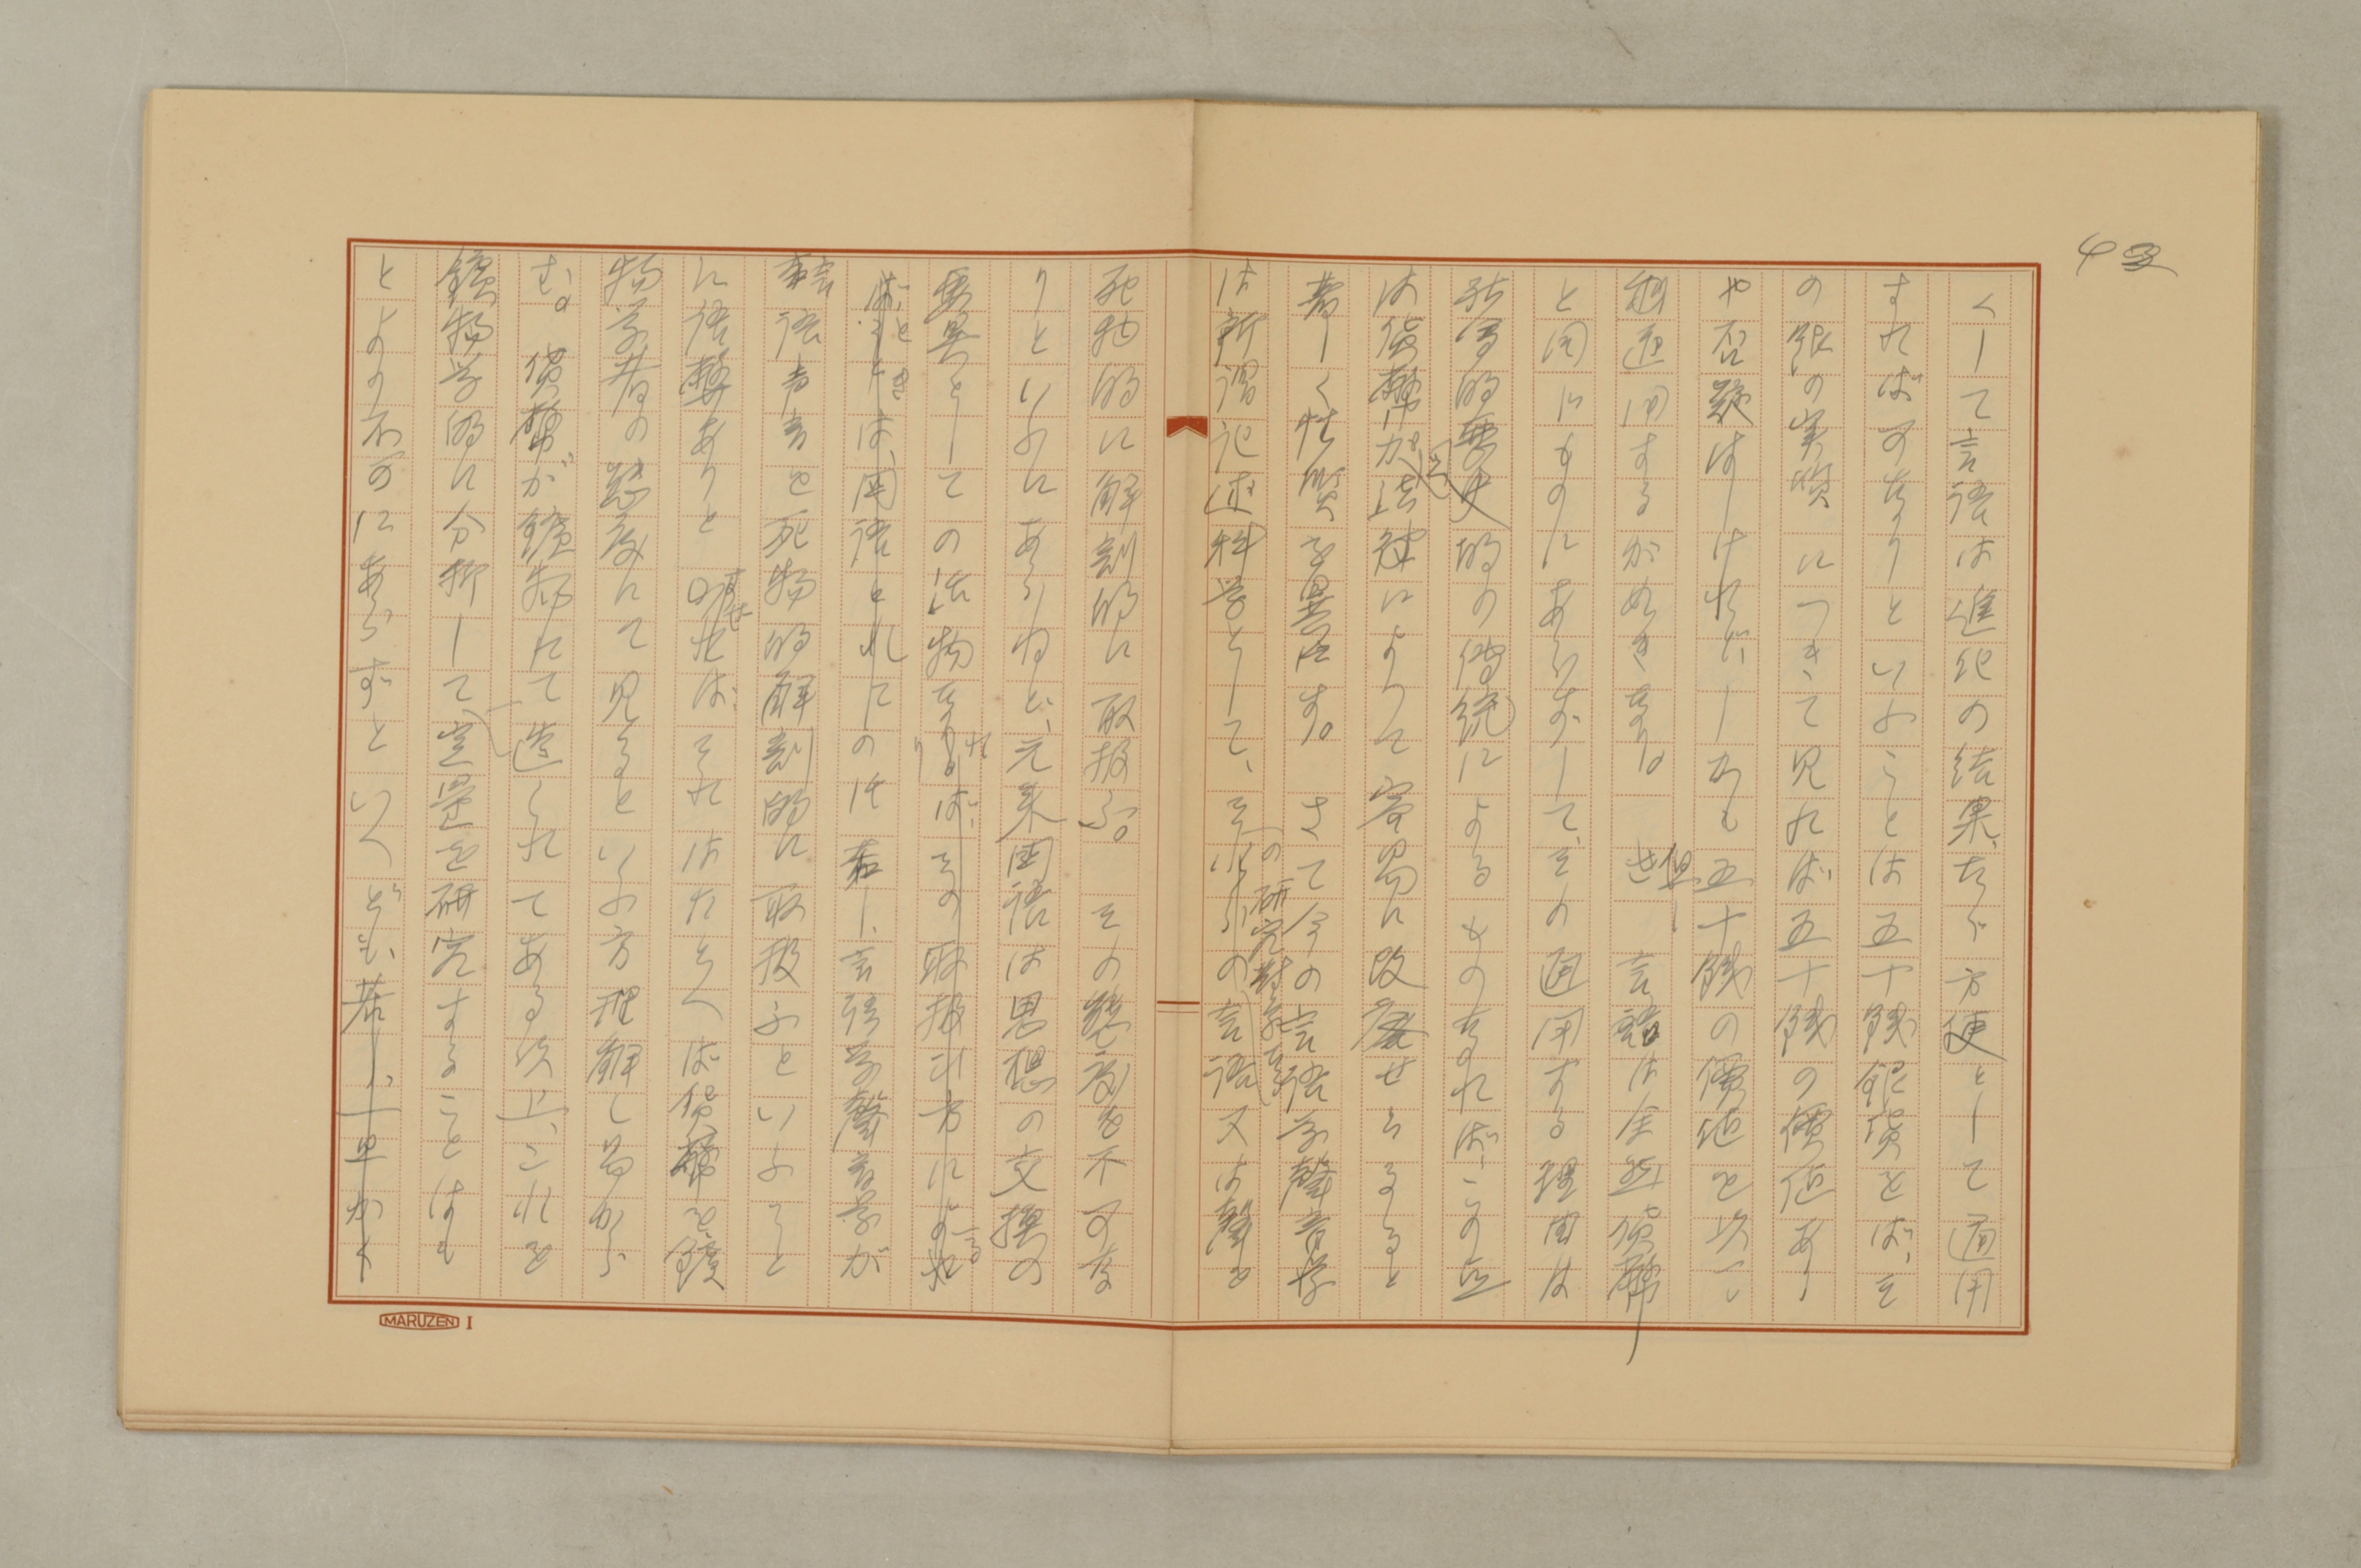 43
くして言語は進化の結果、ただ方便として通用
すれば可なりといふことは五十錢銀貨をば、そ
の銀の実質につきて見れば五十錢の價値あり
や否疑はしけれどしかも五十錢の價値を以て
通用するがぬきなり。但し言語は全然貨幣
と同じものにあらずして、その通用する理由は
社會的歴史的の傳統によるものなれば、この点
は貨幣が法律によりて容易に改廢せらるると
著しく性質を異にす。さて今の言語学聲音学
は所謂記述科学として、その研究対象たる言語又は聲を
死物的に解剖的に取扱ふ。その態度を不可な
りといふにあらねど、元来国語は思想の交換の
要具としての活物なれば、その取扱方による
ときは、国語とれにのは若し、言語学聲音学が
言語声音を死物的解剖的に取扱ふといふこと
に語弊ありとのなれば、それはたとへば貨幣を鑛
物学者の態度にて見るといふ方理解し易から
む。貨幣が鑛物にて造られてある以上、これを
鑛物学的に分析して、定量を研究することはも
とより不可にあらずといへども、若し、一早かく
MARUZEN I